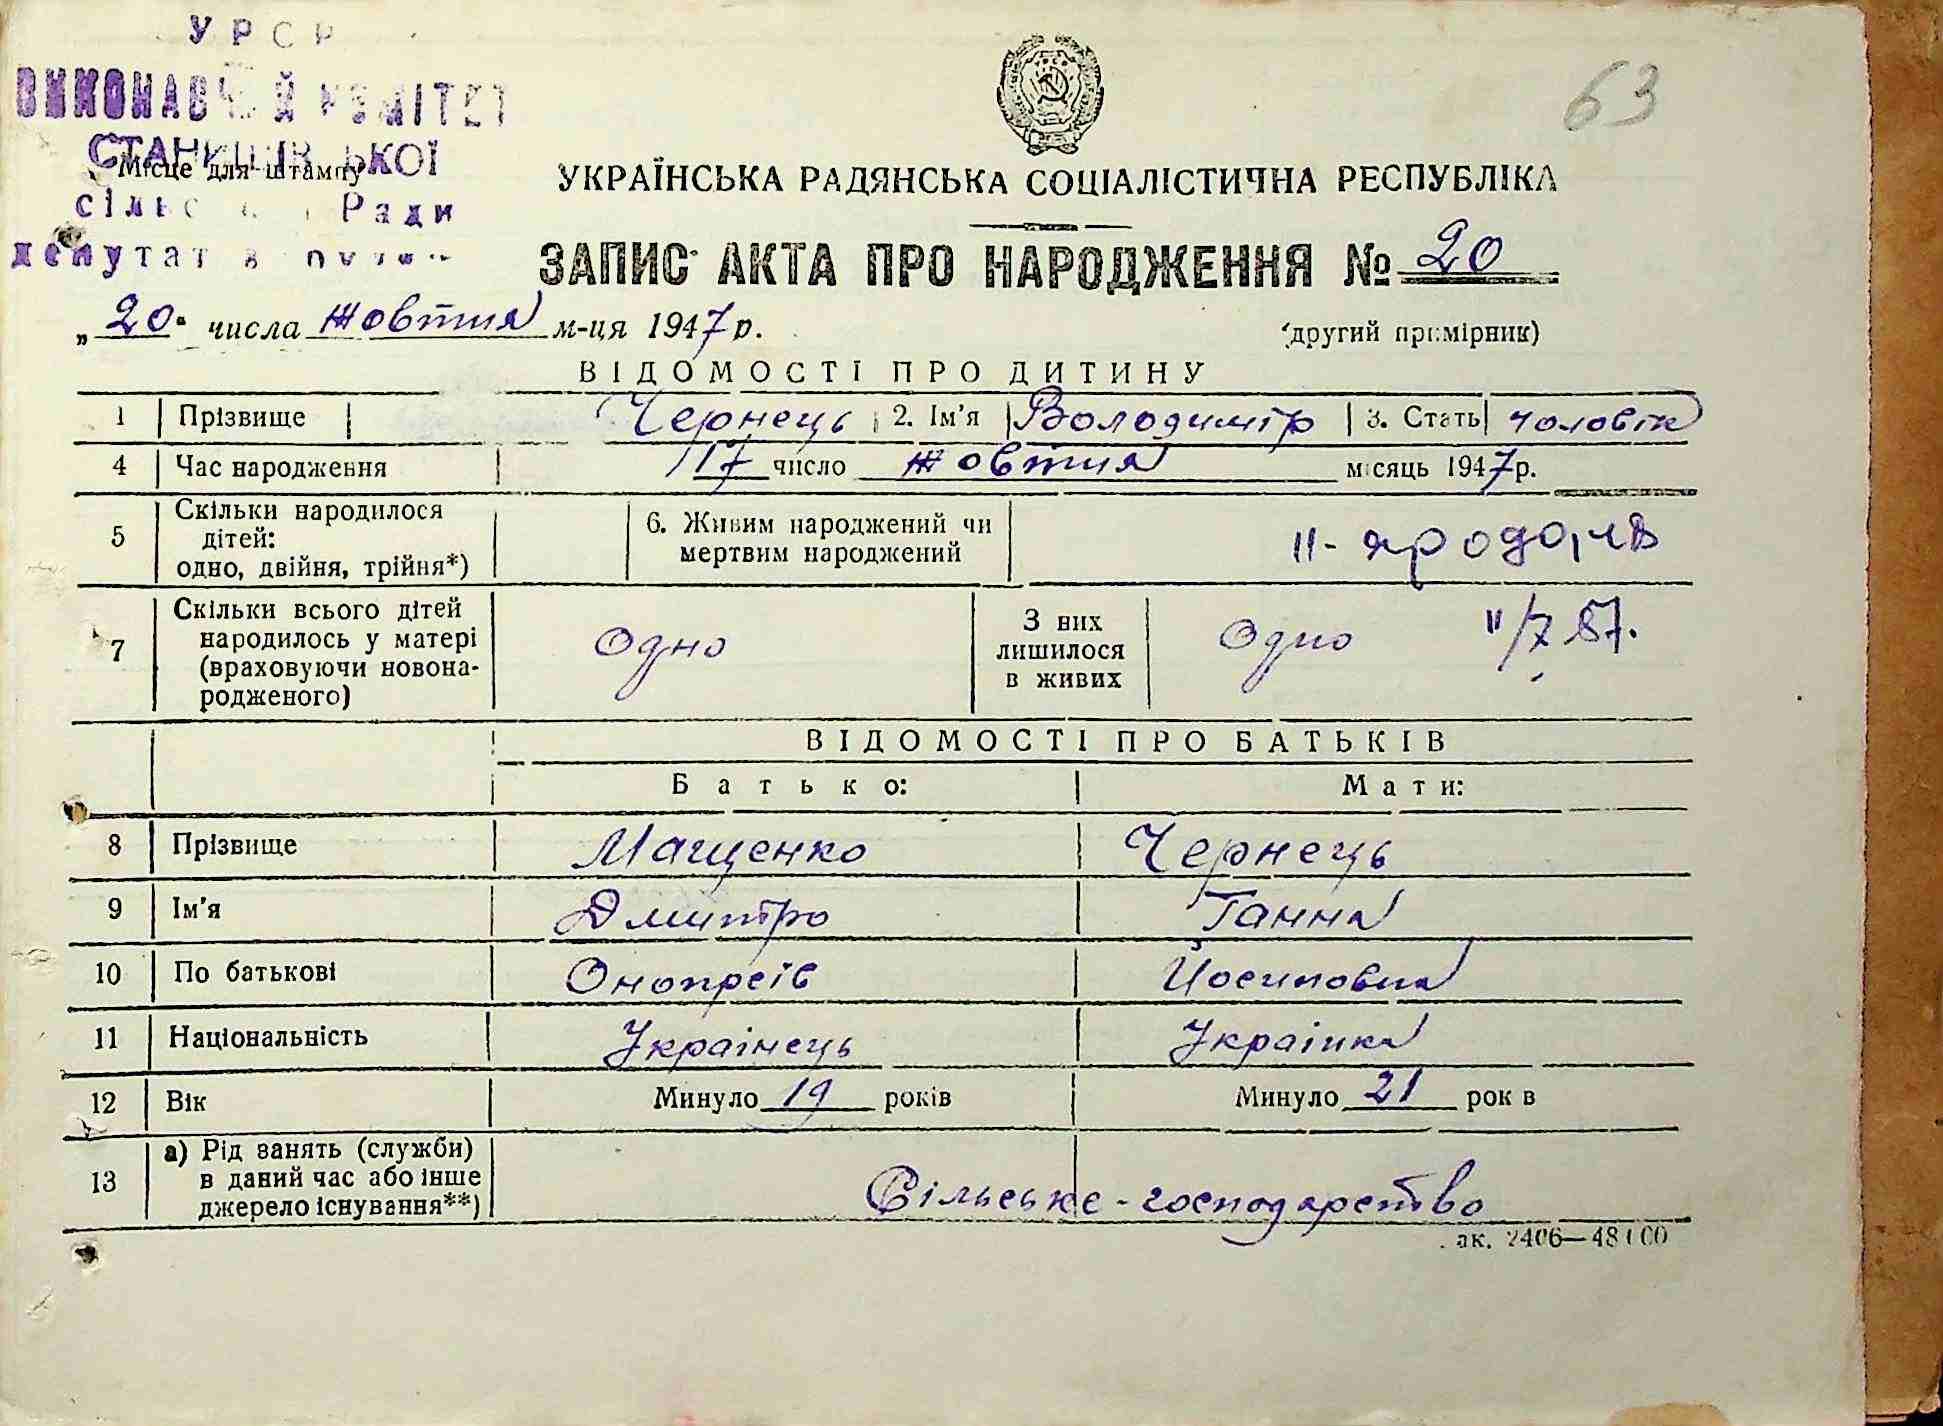 УРСР
ВИКОНАВЧИЙ КОМІТЕТ
СТАНИШІВСЬКОЇ
Місце для штампу
сільс Ради
депутатів
63
УКРАЇНСЬКА РАДЯНСЬКА СОЦІАЛІСТИЧНА РЕСПУБЛІКА
ЗАПИС АКТА ПРО НАРОДЖЕННЯ № 20
„20“ числа жовтня м-ця 1947 р.
(другий примірник)
ВІДОМОСТІ ПРО ДИТИНУ
1 Прізвище Чернець 2. Ім'я Володимір 3. Стать чоловік
4 Час народження 17 число жовтня місяць 1947 р.
5 Скільки народилося дітей: одно, двійня, трійня*) 6. Живим народжений чи мертвим народжений
7 Скільки всього дітей народилось у матері (враховуючи новонародженого) Одно З них лишилося в живих Одно 11/7 57.
ВІДОМОСТІ ПРО БАТЬКІВ
Батько: Мати:
8 Прізвище Мащенко Чернець
9 Ім'я Дмитро Ганна
10 По батькові Онопреів Йосиповна
11 Національність Украінець Украінка
12 Вік Минуло 19 років Минуло 21 рок в
13 а) Рід занять (служби) в даний час або інше джерело існування**) Сільське-господарство
ак. 2406—48